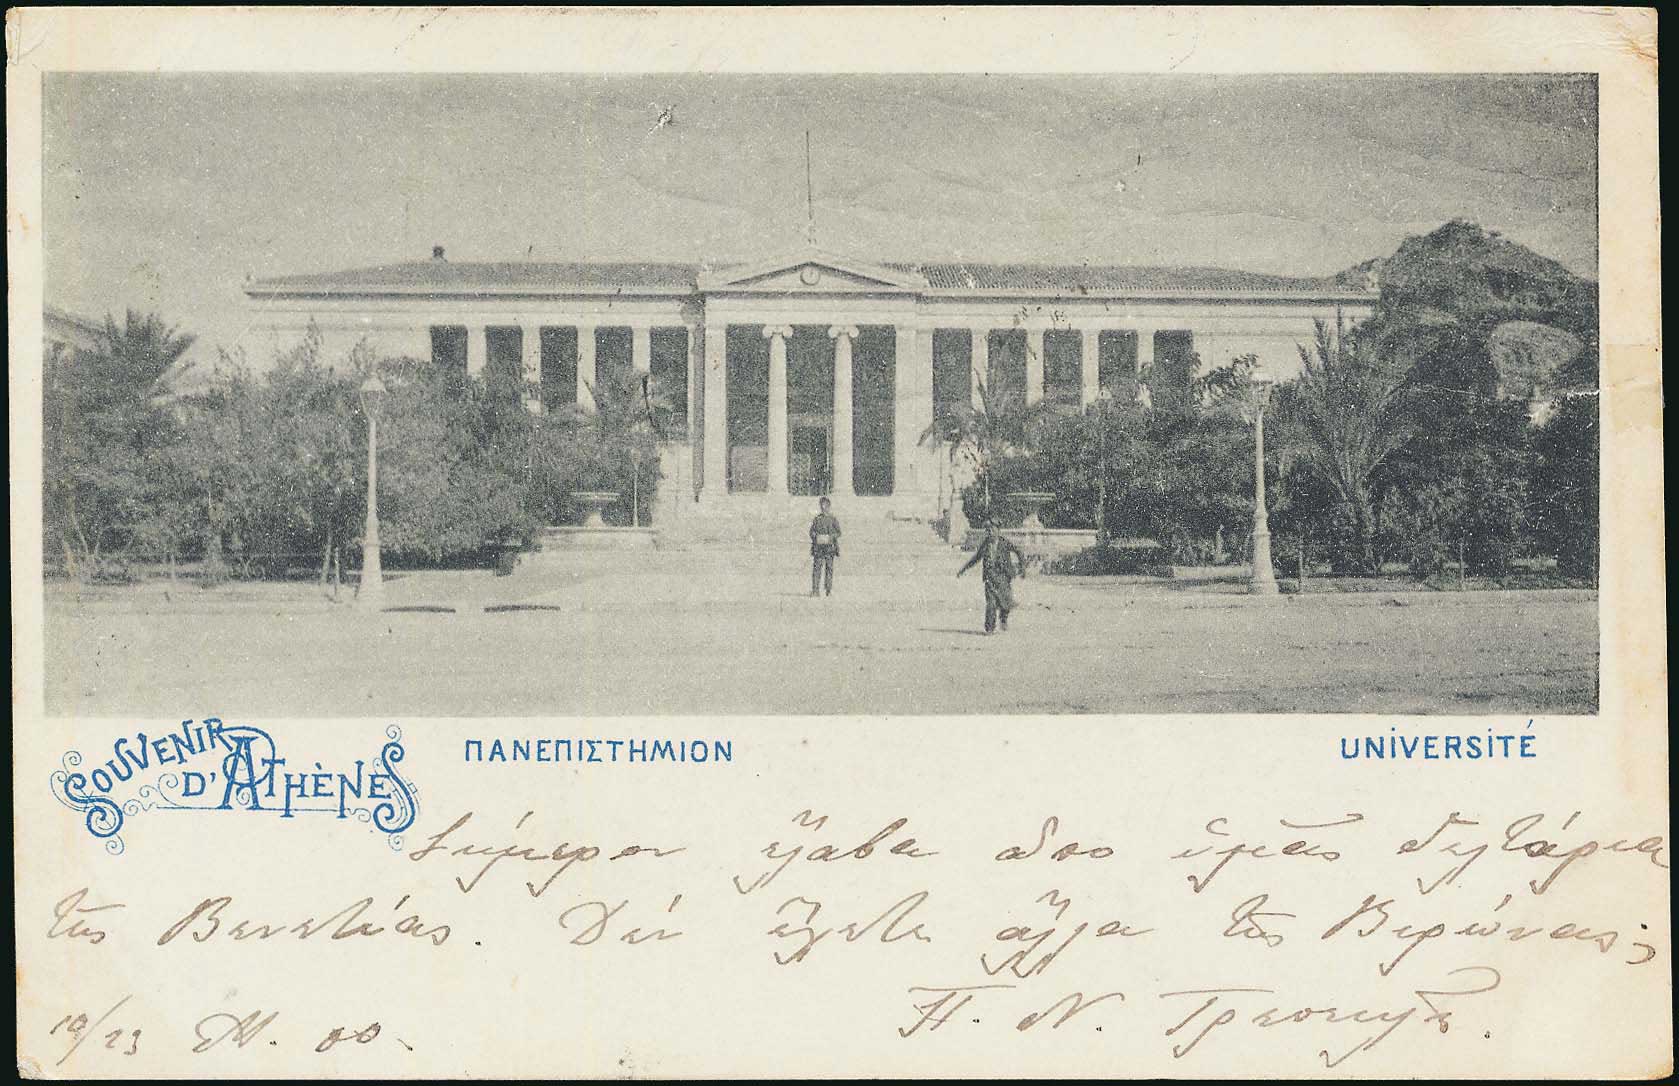 SOUVENIR
D'ATHÈNES
ΠΑΝΕΠΙΣΤΗΜΙΟΝ
UNIVERSITÉ
Σήμερον ἔλαβα ἀπὸ ὑμᾶς δελτάρια
τῆς Βενετίας. Δὲν ἔχετε ἄλλα τῆς Βερώνας;
Π. Ν.
10/23 00.